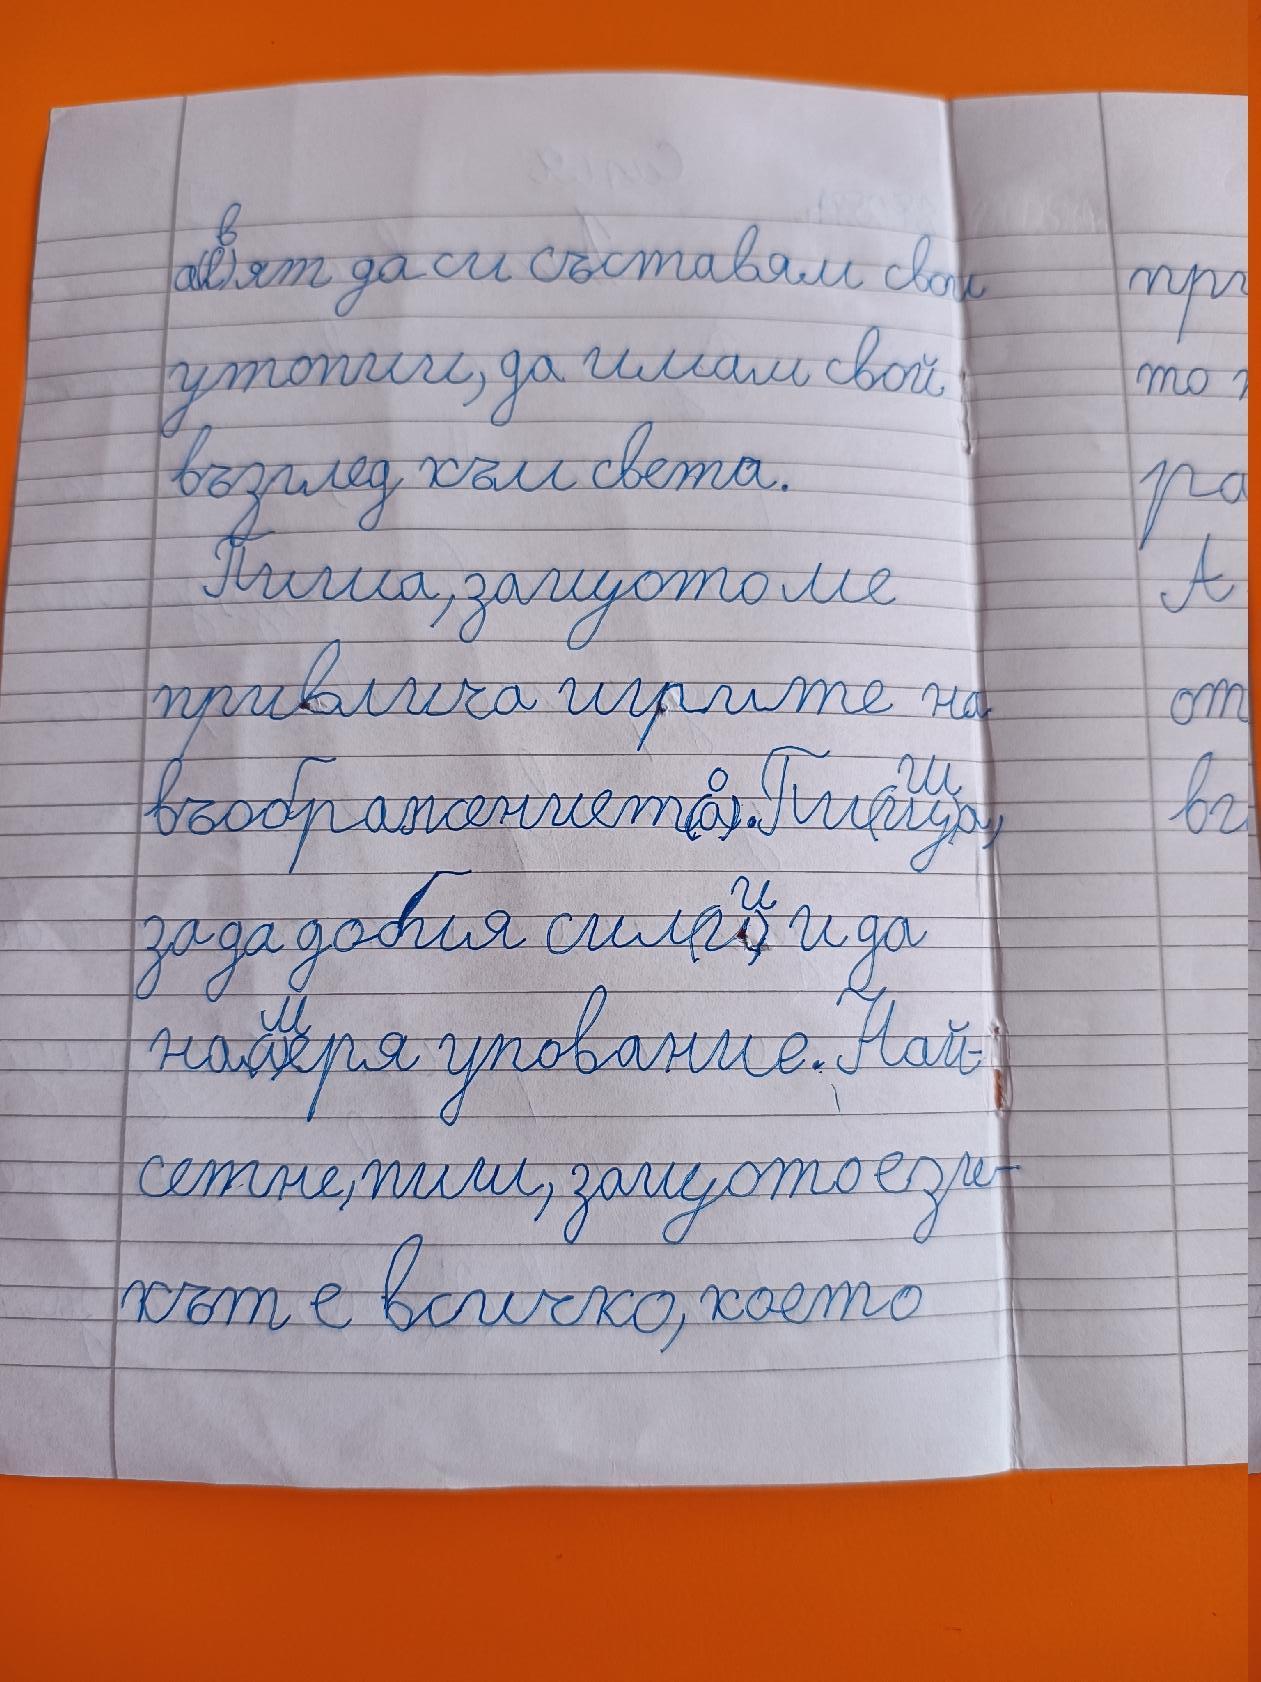 авят да си съставям свои
утопии, да имам свой
възглед към света.
Пиша, защото ме
привлича игрите на
въображението. Пиша,
за да добия сили и да
намеря упование. Най-
сетне, пиш, защото езе-
кът е всичко, което
пр
то
ра
А
от
въ